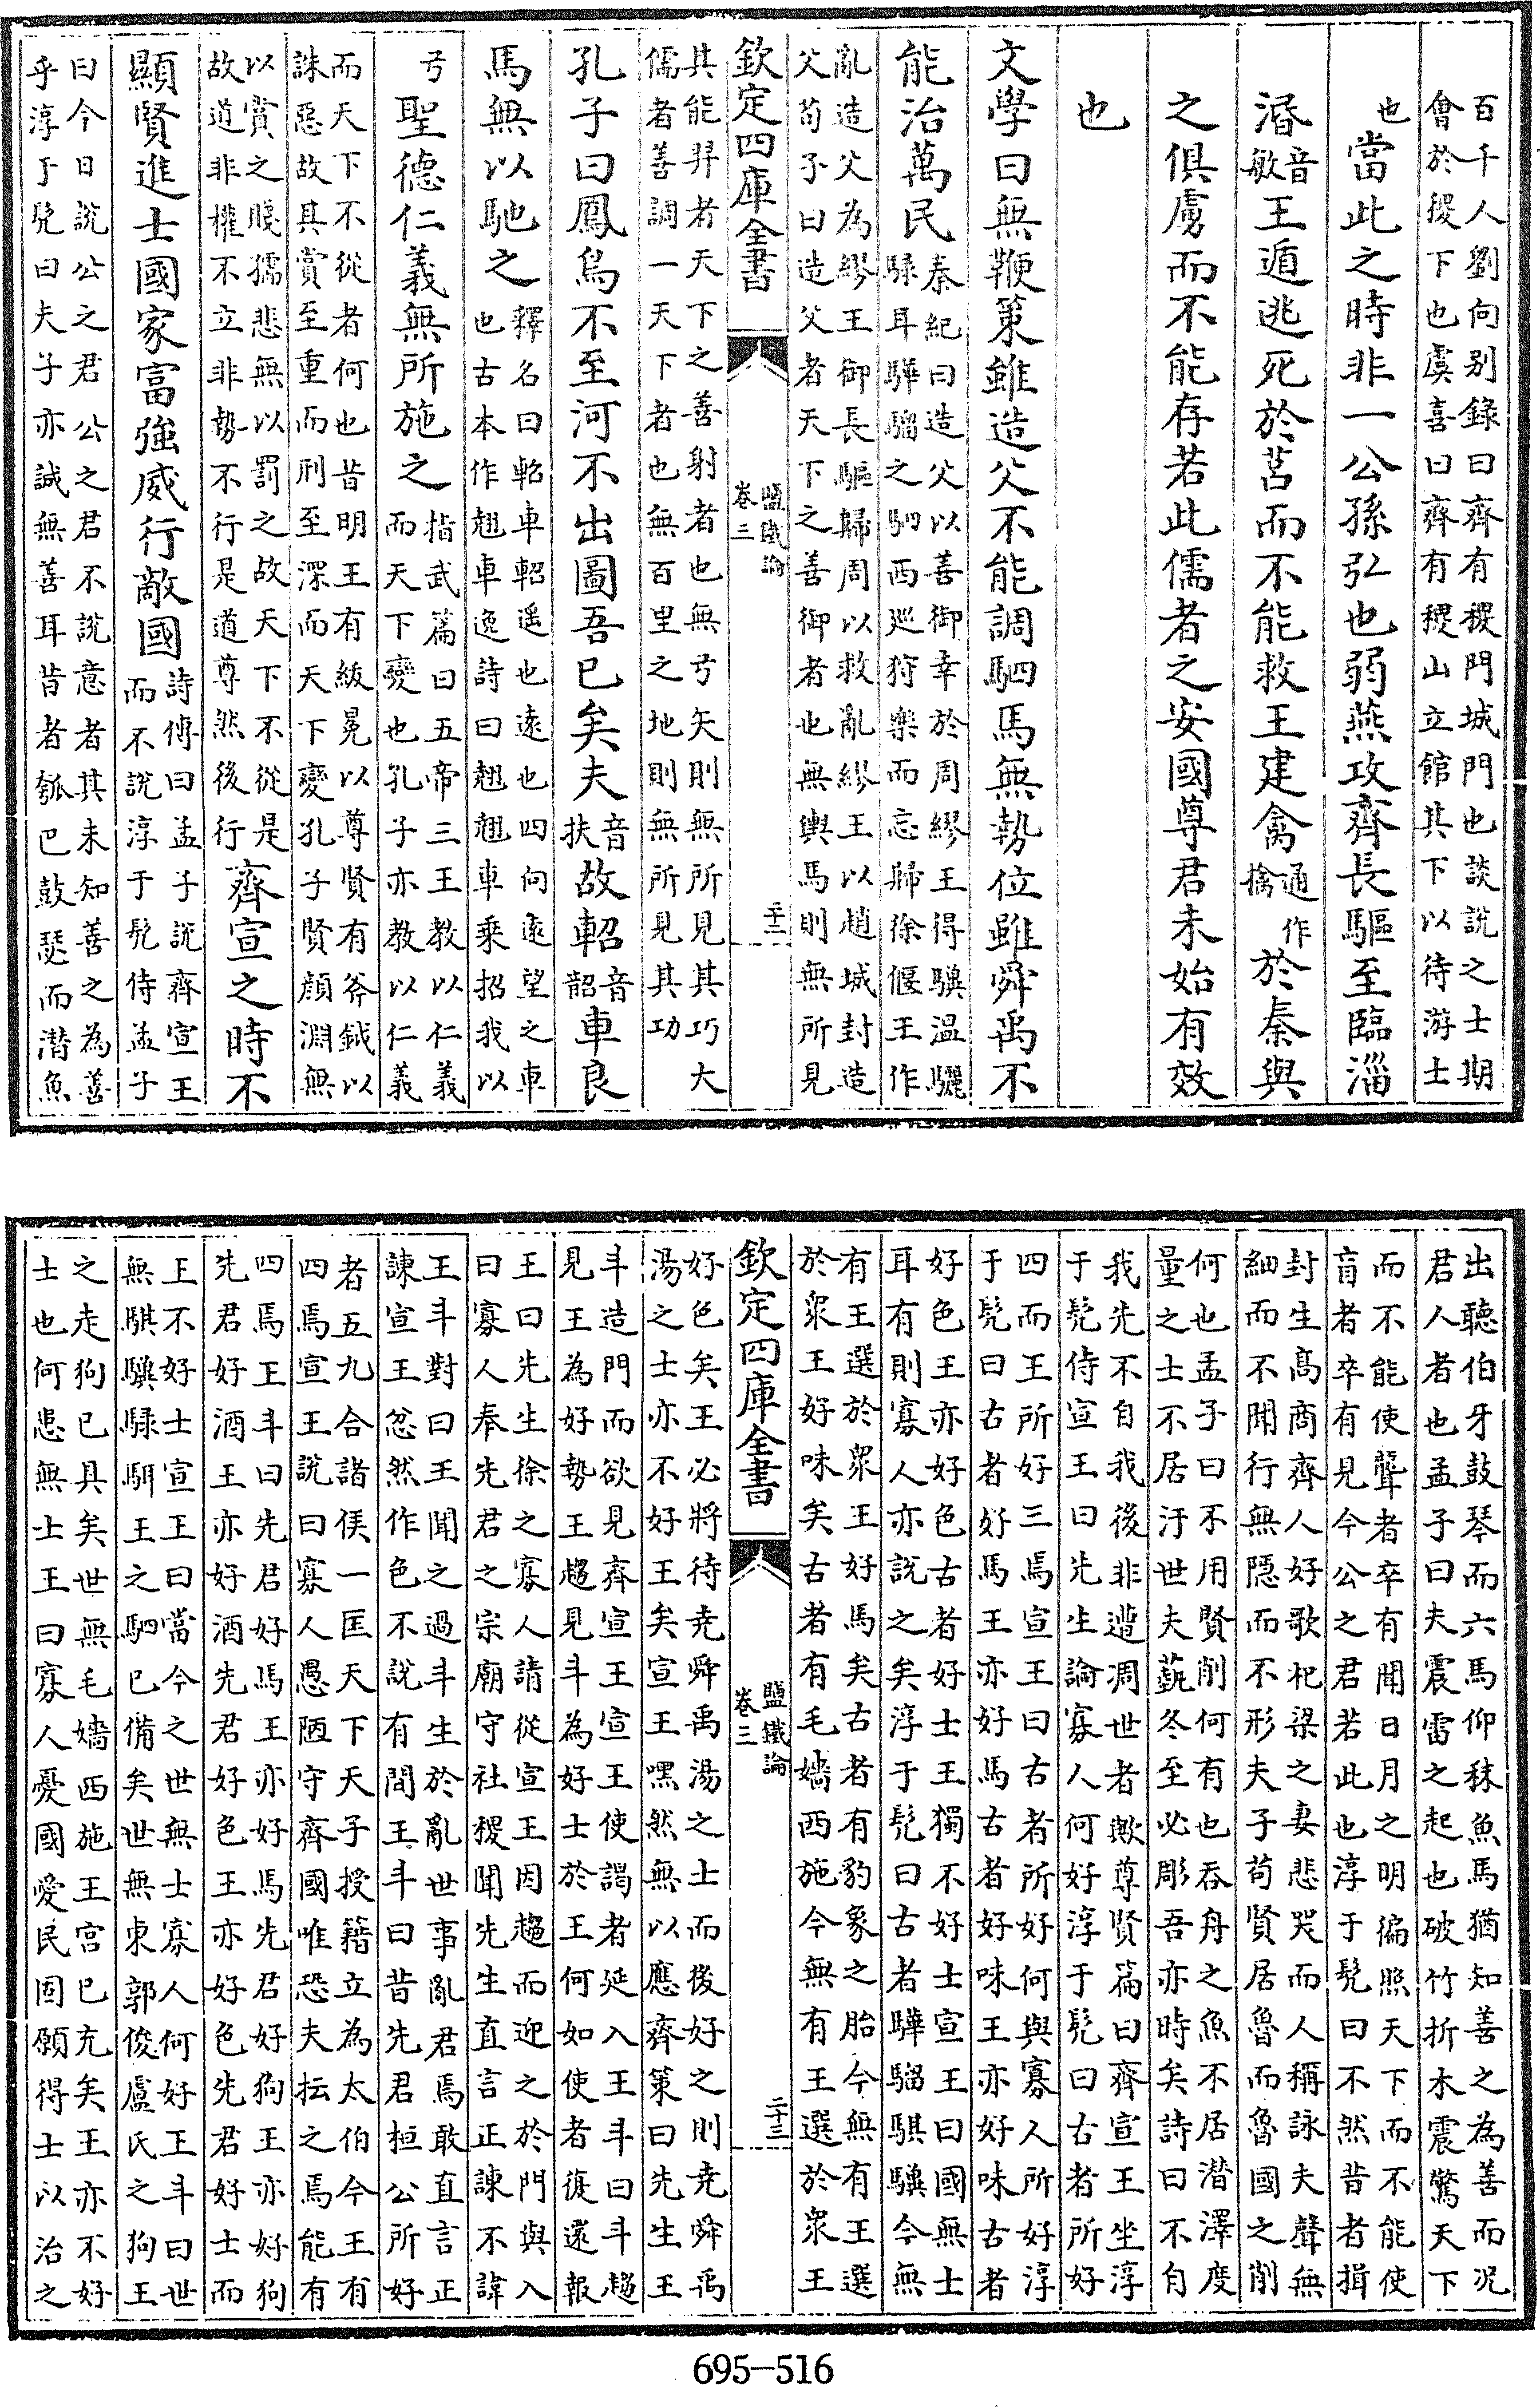 百千人劉向别錄曰齊有稷門城門也談說之士期
會於稷下也虞喜曰齊有稷山立館其下以待游士
也當此之時非一公孫弘也弱燕攻齊長驅至臨淄
湣音敏王遁逃死於莒而不能救王建禽通作擒於秦與
之俱虜而不能存若此儒者之安國尊君未始有效
也
文學曰無鞭策雖造父不能調駟馬無勢位雖舜禹不
能治萬民秦紀曰造父以善御幸於周繆王得驥温驪
騄耳驊騮之駟西巡狩樂而忘歸徐偃王作
亂造父為繆王御長驅歸周以救亂繆王以趙城封造
父荀子曰造父者天下之善御者也無輿馬則無所見
欽定四庫全書
鹽鐵論
卷三
二十二
其能羿者天下之善射者也無弓矢則無所見其巧大
儒者善調一天下者也無百里之地則無所見其功
孔子曰鳳鳥不至河不出圖吾已矣夫音扶故軺音韶車良
馬無以馳之釋名曰軺車軺遥也遠也四向遠望之車
也古本作翹車逸詩曰翹翹車乘招我以
弓聖德仁義無所施之指武篇曰五帝三王教以仁義
而天下變也孔子亦教以仁義
而天下不從者何也昔明王有紱冕以尊賢有斧鉞以
誅惡故其賞至重而刑至深而天下變孔子賢顔淵無
以賞之賤孺悲無以罰之故天下不從是
故道非權不立非勢不行是道尊然後行齊宣之時不
顯賢進士國家富強威行敵國詩傳曰孟子說齊宣王
而不說淳于髠侍孟子
曰今日說公之君公之君不說意者其未知善之為善
乎淳于髠曰夫子亦誠無善耳昔者瓠巴鼓瑟而潜魚
出聽伯牙鼓琴而六馬仰秣魚馬猶知善之為善而况
君人者也孟子曰夫震雷之起也破竹折木震驚天下
而不能使聾者卒有聞日月之明徧照天下而不能使
盲者卒有見今公之君若此也淳于髠曰不然昔者揖
封生髙商齊人好歌杞梁之妻悲哭而人稱詠夫聲無
細而不聞行無隱而不形夫子苟賢居魯而魯國之削
何也孟子曰不用賢削何有也吞舟之魚不居潜澤度
量之士不居汙世夫蓺冬至必彫吾亦時矣詩曰不自
我先不自我後非遭凋世者歟尊賢篇曰齊宣王坐淳
于髠侍宣王曰先生論寡人何好淳于髠曰古者所好
四而王所好三焉宣王曰古者所好何與寡人所好淳
于髠曰古者好馬王亦好馬古者好味王亦好味古者
好色王亦好色古者好士王獨不好士宣王曰國無士
耳有則寡人亦說之矣淳于髠曰古者驊騮騏驥今無
有王選於衆王好馬矣古者有豹象之胎今無有王選
於衆王好味矣古者有毛嬙西施今無有王選於衆王
欽定四庫全書
鹽鐵論
卷三
二十三
好色矣王必將待尭舜禹湯之士而後好之則尭舜禹
湯之士亦不好王矣宣王嘿然無以應齊策曰先生王
斗造門而欲見齊宣王宣王使謁者延入王斗曰斗趨
見王為好勢王趨見斗為好士於王何如使者復還報
王曰先生徐之寡人請從宣王因趨而迎之於門與入
曰寡人奉先君之宗廟守社稷聞先生直言正諫不諱
王斗對曰王聞之過斗生於亂世事亂君焉敢直言正
諫宣王忿然作色不說有間王斗曰昔先君桓公所好
者五九合諸侯一匡天下天子授籍立為太伯今王有
四焉宣王說曰寡人愚陋守齊國唯恐夫抎之焉能有
四焉王斗曰先君好馬王亦好馬先君好狗王亦好狗
先君好酒王亦好酒先君好色王亦好色先君好士而
王不好士宣王曰當今之世無士寡人何好王斗曰世
無騏驥騄駬王之駟已備矣世無東郭俊盧氏之狗王
之走狗已具矣世無毛嬙西施王宮已充矣王亦不好
士也何患無士王曰寡人憂國愛民固願得士以治之
695-516